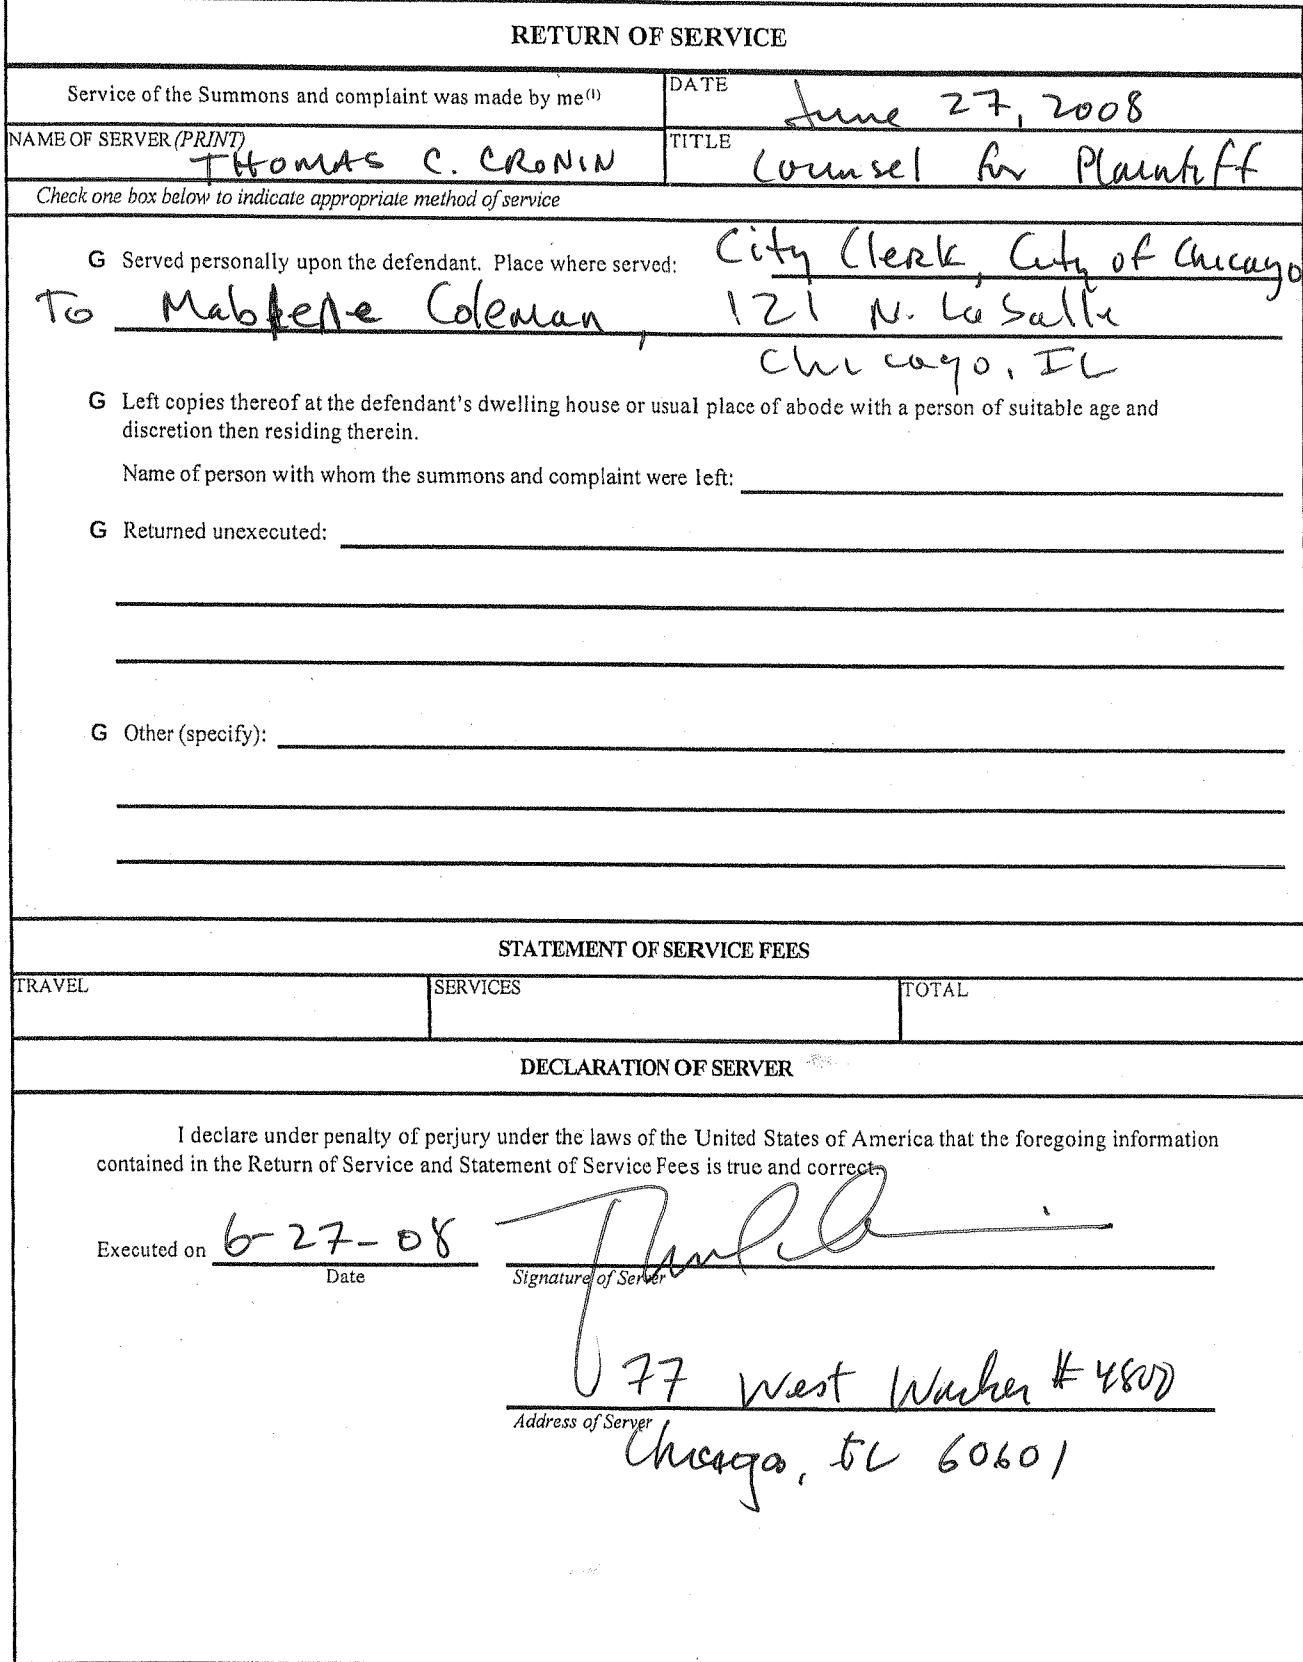 RETURN OF SERVICE
Service of the Summons and complaint was made by me(1)
DATE
June 27, 2008
NAME OF SERVER (PRINT)
THOMAS C. CRONIN
TITLE
Counsel for Plaintiff
Check one box below to indicate appropriate method of service
G Served personally upon the defendant. Place where served: City Clerk, City of Chicago
To Coleman, 121 N. LaSalle
Chicago, IL
G Left copies thereof at the defendant's dwelling house or usual place of abode with a person of suitable age and
discretion then residing therein.
Name of person with whom the summons and complaint were left:
G Returned unexecuted:
G Other (specify):
STATEMENT OF SERVICE FEES
TRAVEL
SERVICES
TOTAL
DECLARATION OF SERVER
I declare under penalty of perjury under the laws of the United States of America that the foregoing information
contained in the Return of Service and Statement of Service Fees is true and correct.
Executed on 6-27-08
Date
Signature of Server
77 West Wacker # 4800
Address of Server
Chicago, IL 60601